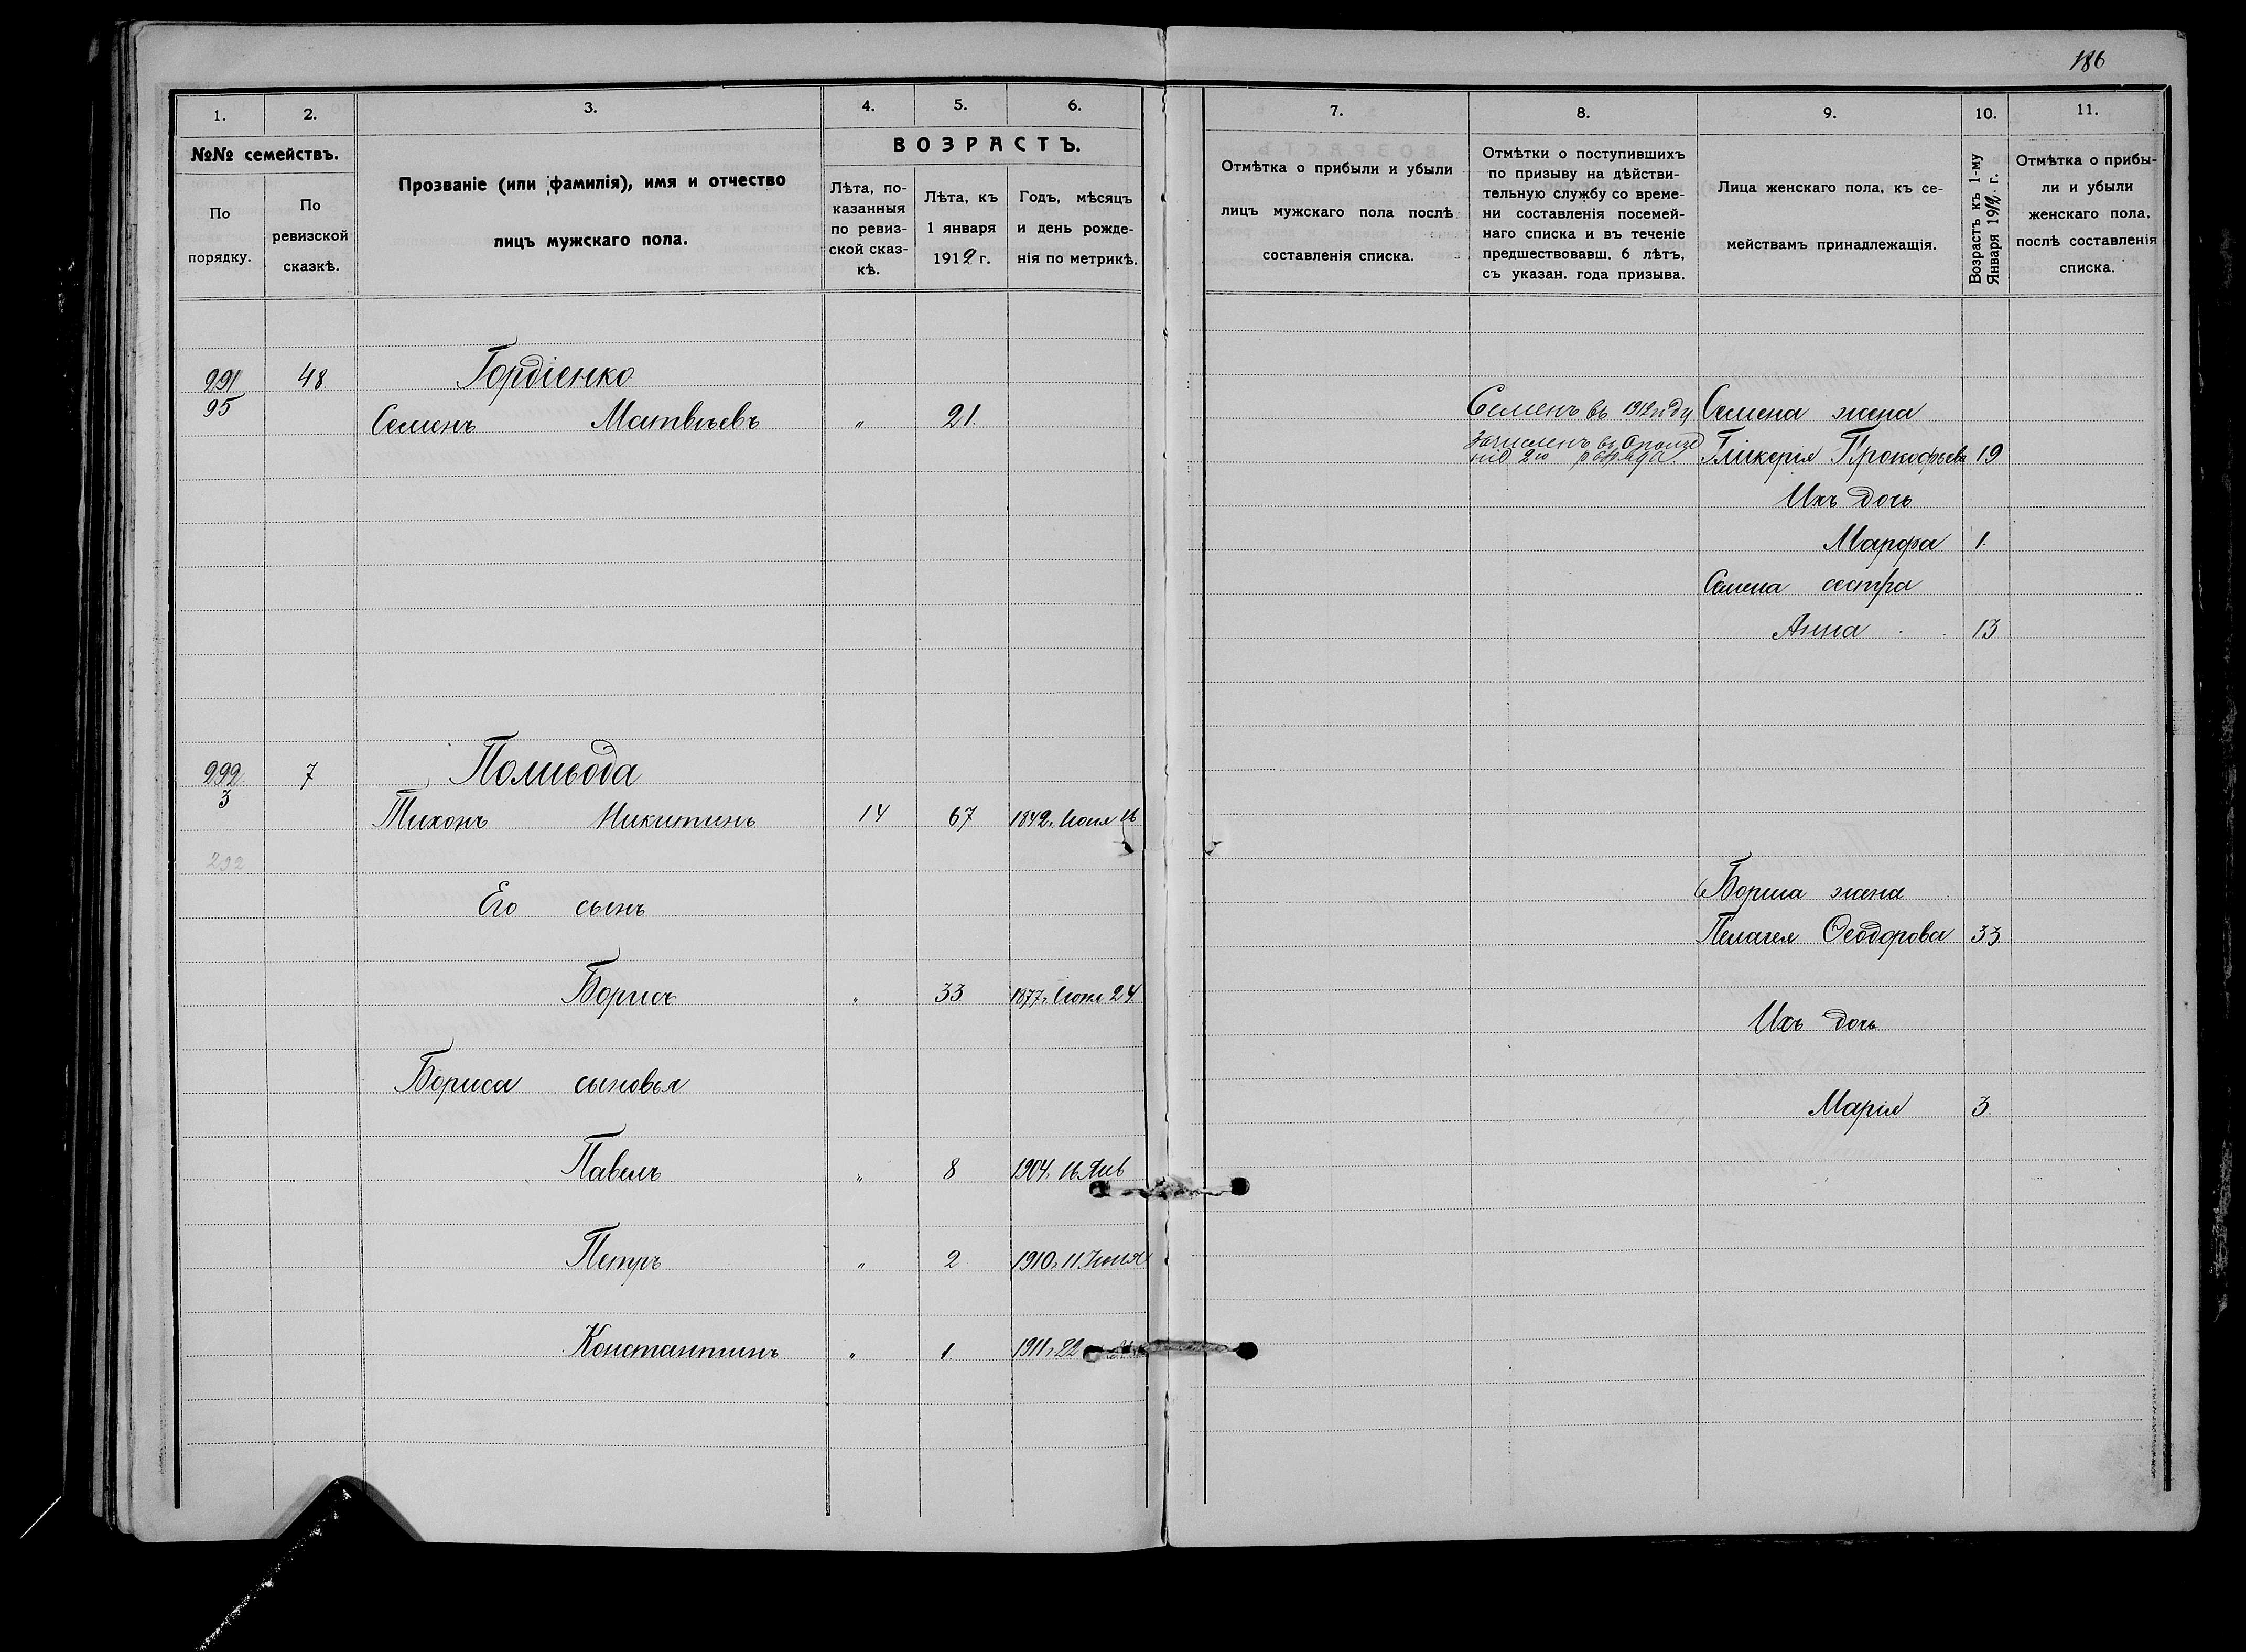 186
1. 2. 3. 4. 5. 6.
№№ семействъ.
По порядку.
По ревизской сказкѣ.
Прозваніе (или фамилія), имя и отчество
лицъ мужскаго пола.
ВОЗРАСТЪ.
Лѣта, по-
казанныя
по ревиз-
ской сказ-
кѣ.
Лѣта, къ
1 января
1912 г.
Годъ, мѣсяцъ
и день рожде-
нія по метрикѣ.
291 48 Гордіенко
95
Семенъ Матвѣевъ " 21.
292 7 Поливода
3
Тихонъ Никитинъ 14 67 1842 г. Іюня 16
292
Его сынъ
Борисъ " 33 1877 г. Іюля 24
Бориса сыновья
Павелъ " 8 1904 г. 16 Янв
Петръ " 2 1910 г. 11 Іюня
Константинъ " 1. 1911 г. 22
7. 8. 9. 10. 11.
Отмѣтка о прибыли и убыли
лицъ мужскаго пола послѣ
составленія списка.
Отмѣтки о поступившихъ
по призыву на дѣйстви-
тельную службу со време-
ни составленія посемей-
наго списка и въ теченіе
предшествовавш. 6 лѣтъ,
съ указан. года призыва.
Лица женскаго пола, къ се-
мействамъ принадлежащія.
Возрастъ къ 1-му
Января 1912 г.
Отмѣтка о прибы-
ли и убыли
женскаго пола,
послѣ составленія
списка.
Семенъ въ 1912 году
зачисленъ въ ополче
ніе 2го разряда.
Семена жена
Гликерія Прокофьева 19
Ихъ дочь
Марфа 1.
Семена сестра
Анна 13
Бориса жена
Пелагея Ѳеодорова 33
Ихъ дочь
Марія 3.